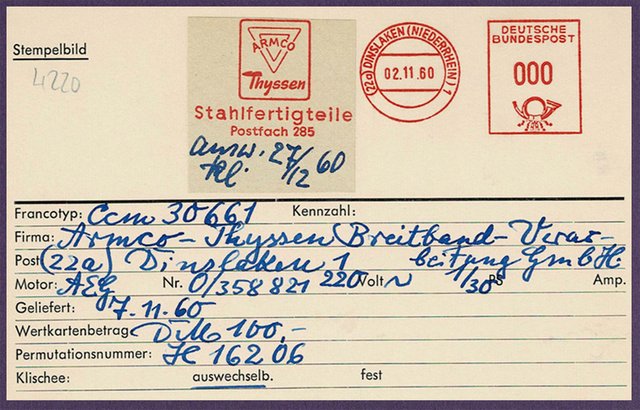 Stempelbild
4220
ARMCO
Thyssen
Stahlfertigteile
Postfach 285
ausw. 27/12 60
(22a) DINSLAKEN (NIEDERRHEIN) 1
02.11.60
DEUTSCHE
BUNDESPOST
000
Francotyp: Ccm 30661 Kennzahl:
Firma: Armco-Thyssen Breitband-Verar-
Post (22a) Dinslaken 1 beitung GmbH.
Motor: AEG Nr. 0/358821 220 Volt ~ 1/30 PS Amp.
Geliefert: 7.11.60
Wertkartenbetrag DM 100,-
Permutationsnummer: H 16206
Klischee: auswechselb. fest